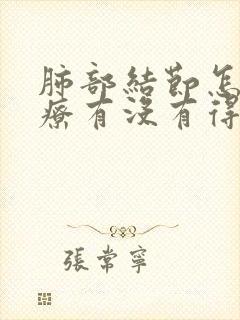 肺部結節怎
療有没有得
張常寧